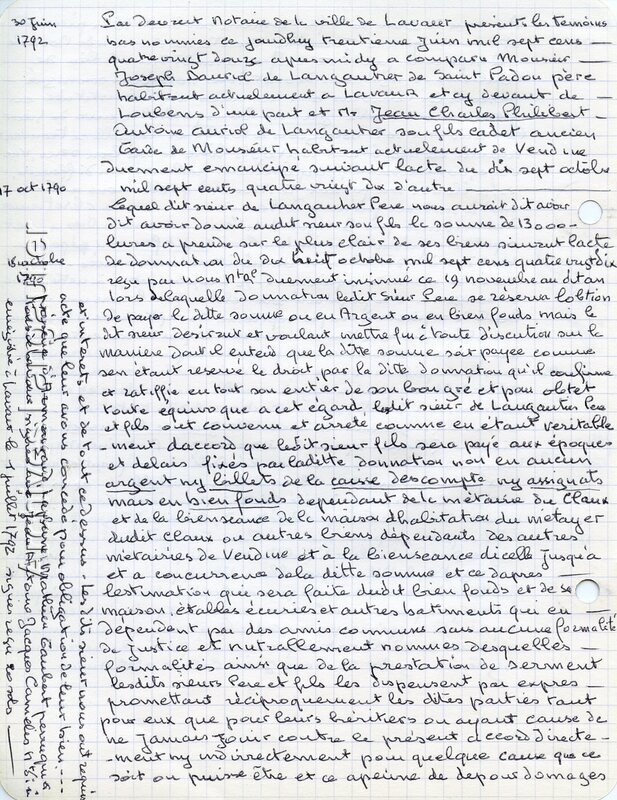 30 Juin
1792
Par devant Notaire de la ville de Lavaur présents les témoins
bas nommés ce jourdhuy trentième Juin mil sept cens
quatre vingt douze apres midy a comparu Monsieur
Joseph Dauriol de Langautier de Saint Padou père
habitant actuellement a Lavaur et cy devant de
Loubens d'une part et Mr Jean Charles Philibert
Antoine auriol de Langautier son fils cadet ancien
Garde de Monsieur habitant actuellement de Vendine
duement emancipé suivant lacte du dix sept octobre
mil sept cents quatre vingt dix d'autre
17 oct 1790
Lequel dit sieur de Langautier Pere nous auroit dit avoir
dit avoir donné audit sieur son fils la somme de 13000
livres a prendre sur le plus clair de ses biens suivant lacte
de donnation du dix huit octobre mil sept cens quatre vingt dix
reçu par nous Ntre duement insinué ce 19 novembre audit an
lors de laquelle donnation ledit Sieur Pere se reserva lobtion
de payer la ditte somme ou en Argent ou en bien fonds mais le
dit sieur desirant et voulant mettre fin à toute discution sur la
manière dont il entend que la ditte somme soit payée comme
sen étant reservé le droit par la ditte donnation qu'il confirme
et ratiffie en tout son entier de son bon gré et pour obter
toute equivoque a cet égard, ledit sieur de Langautier Pere
et fils ont convenu et arreté comme en étant veritable
-ment daccord que ledit sieur fils sera payé aux époques
et delais fixés par laditte donnation non en aucun
argent ny billets de la causse descompte ny assignats
mais en bien fonds dependant de la métairie du Claux
et de la bienseance de la maison dhabitation du métayer
dudit Claux ou autres biens dépendants des autres
métairies de Vendine et à la bienseance dicelle jusqu'a
et a concurrence de la ditte somme et ce dapres
lestimation qui sera faite dudit bien fonds et de sa
maison, étables écuries et autres batiments qui en
dépendent par des amis communs sans aucune formalité
de Justice et nutrallement nommés desquelles
formalités ainsi que de la prestation de serment
lesdits sieurs Pere et fils les dispensent par expres
promettant réciproquement les dites parties tant
pour eux que pour leurs héritiers ou ayant cause de
ne jamais venir contre le présent accord directe-
-ment ny indirectement pour quelque cause que ce
soit ou puisse être et ce apeine de depour domages
et interets et de tout ce dessus lesdits sieur nous ont requis
acte que leur avons concedé pour obligation de leur bien
enregistré à Lavaur le 1 juillet 1792 signés reçu 20 sols